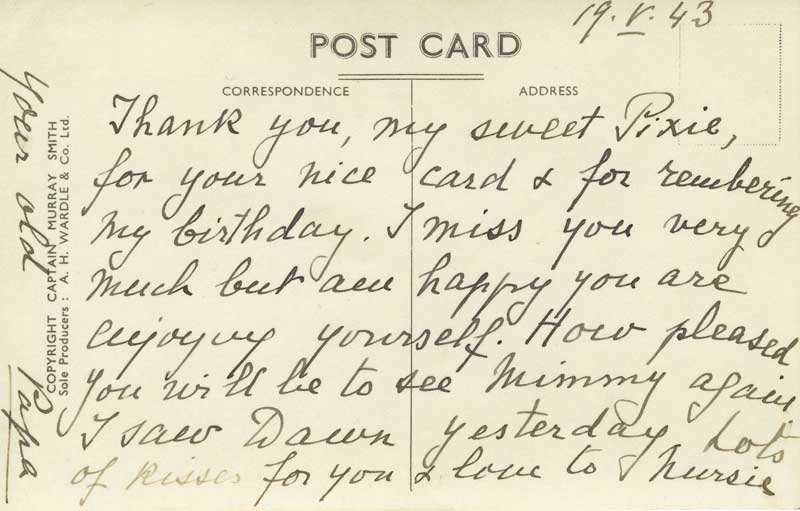 19.V.43
POST CARD
CORRESPONDENCE
ADDRESS
Thank you, my sweet Pixie,
for your nice card & for rembering
my birthday. I miss you very
much but am happy you are
enjoying yourself. How pleased
you will be to see Mimmy again
I saw Dawn yesterday Lots
of kisses for you & love to Nursie
Your old Papa
COPYRIGHT CAPTAIN MURRAY SMITH
Sole Producers: A. H. WARDLE & Co. Ltd.